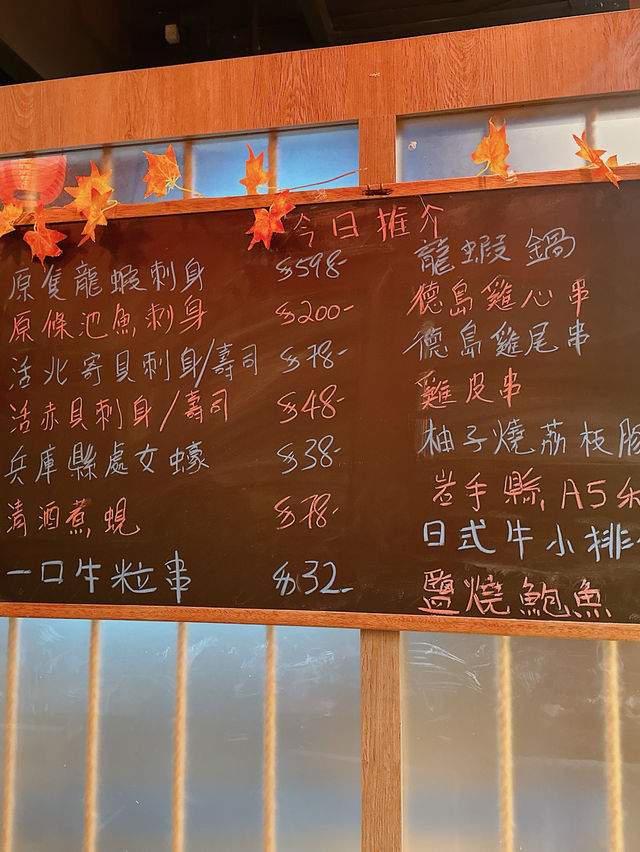 今日推介
原隻龍蝦刺身 $598-
原條池魚刺身 $200-
活北寄貝刺身/壽司 $78-
活赤貝刺身/壽司 $48-
兵庫縣處女蠔 $38-
清酒煮蜆 $78-
一口牛粒串 $32-
龍蝦鍋
德島雞心串
德島雞尾串
雞皮串
柚子燒荔枝豚
岩手縣A5和
日式牛小排
鹽燒鮑魚